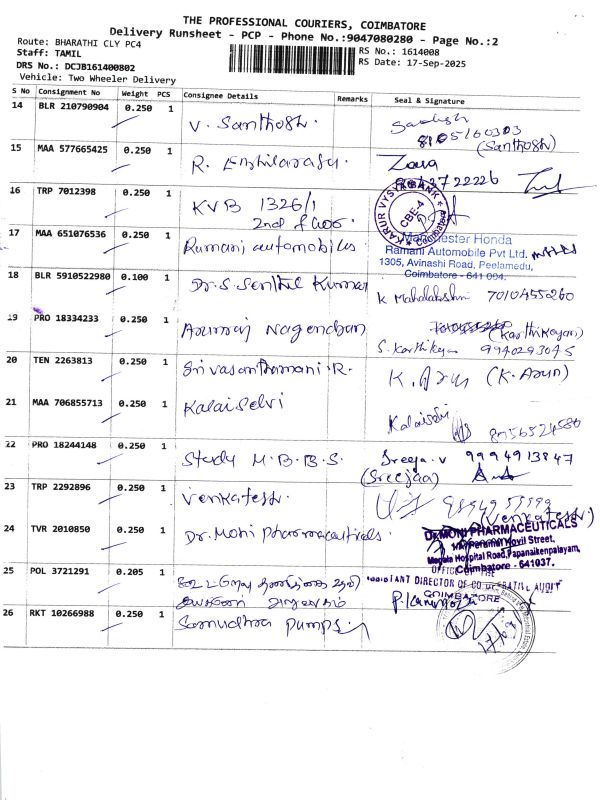 THE PROFESSIONAL COURIERS, COIMBATORE
Delivery Runsheet - PCP - Phone No.:9047080280 - Page No.:2
Route: BHARATHI CLY PC4
Staff: TAMIL
DRS No.: DCJB161400802
Vehicle: Two Wheeler Delivery
RS No.: 1614008
RS Date: 17-Sep-2025
S No Consignment No Weight PCS Consignee Details Remarks Seal & Signature
14 BLR 210790904 0.250 1 V. Santhosh.
8105160303
(Santhosh)
15 MAA 577665425 0.250 1 R. Enhilarasu. Zara
16 TRP 7012398 0.250 1 KVB 1326/1
2nd floor.
KARUR VYSYA BANK
CBE-4
Coimbatore
17 MAA 651076536 0.250 1 Ramani automobiles
Manchester Honda
Ramani Automobile Pvt Ltd.
1305, Avinashi Road, Peelamedu,
Coimbatore - 641 004.
18 BLR 5910522980 0.100 1 Dr. S. Senthil Kumar K Mahalakshmi 7010455260
19 PRO 18334233 0.250 1 Arumaj Nagendran (Karthikeyan)
S. Karthikeyan 9940293045
20 TEN 2263813 0.250 1 Srivasanthamani. R. K. Arun (K. Arun)
21 MAA 706855713 0.250 1 Kalaiselvi Kalaiselvi 8056524580
22 PRO 18244148 0.250 1 Study M.B.B.S. Sreeja.v 9994913847
(Sreejaa)
23 TRP 2292896 0.250 1 Venkatesh.
(Venkatesh)
24 TVR 2010850 0.250 1 Dr. Moni Pharmaceuticals.
Dr.MONI PHARMACEUTICALS
Kovil Street,
Hospital Road, Papanaikenpalayam,
Coimbatore - 641037.
25 POL 3721291 0.205 1 கூட்டுறவு தணிக்கை உதவி
அலுவலகம்
OFFICE OF THE
ASSISTANT DIRECTOR OF CO-OPERATIVE AUDIT
COIMBATORE
26 RKT 10266988 0.250 1 Samudhra Pumps